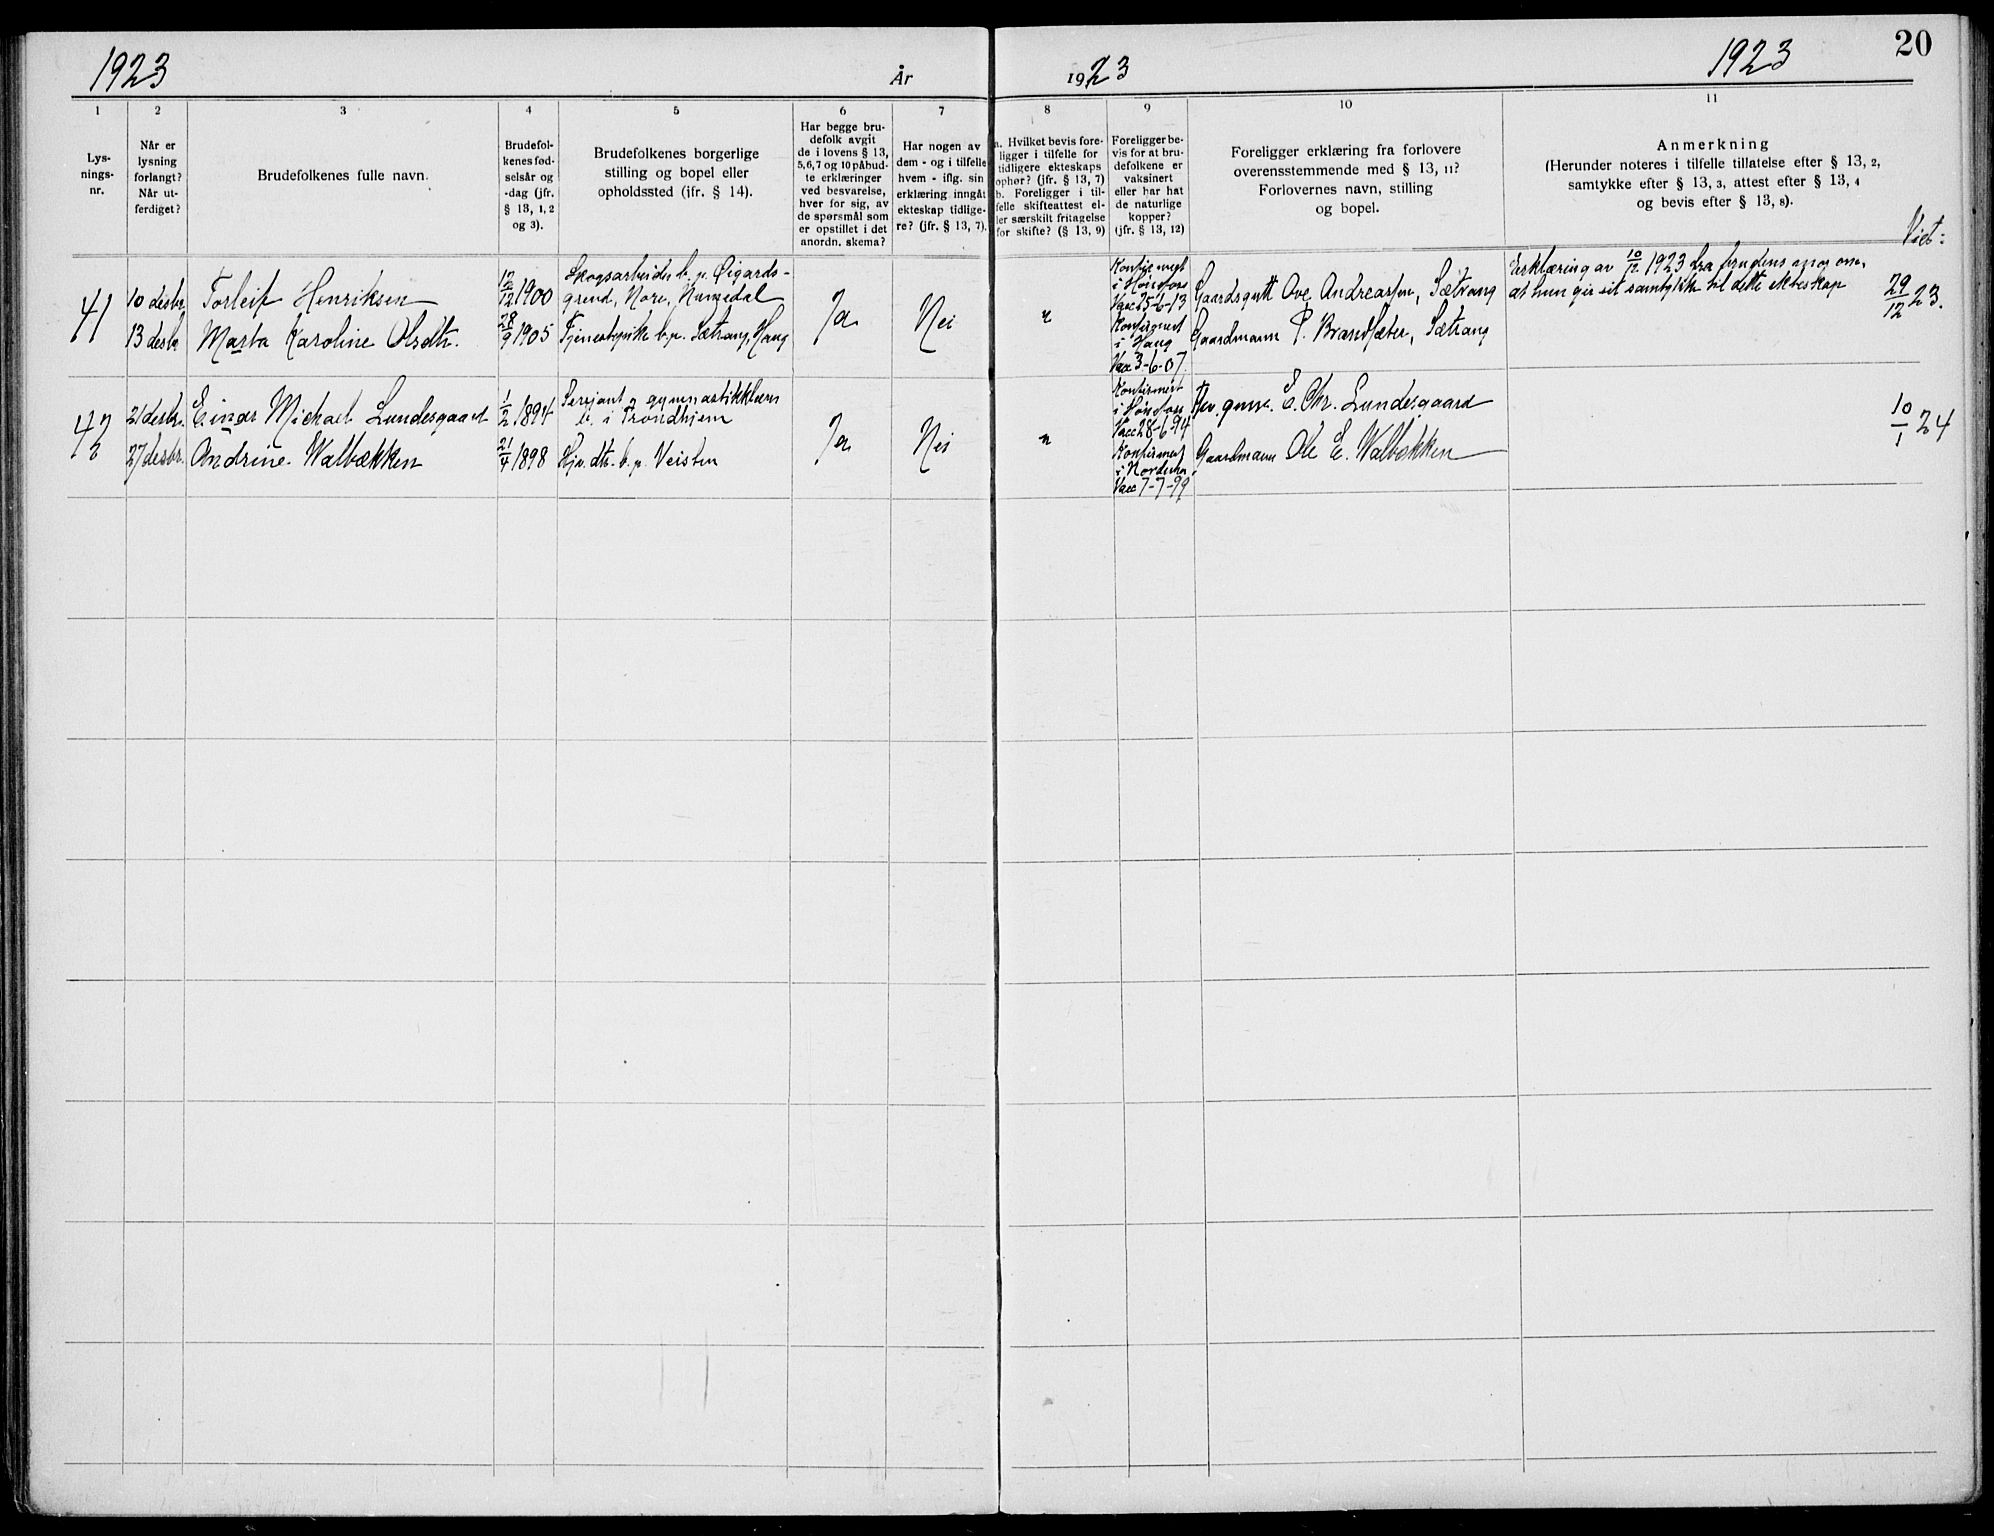 1923
År
1923
1923
20
1
2
3
4
5
6
7
8
9
10
11
Lys-
nings-
nr.
Når er
lysning
forlangt?
Når ut-
ferdiget?
Brudefolkenes fulle navn.
Brudefol-
kenes fød-
selsår og
-dag (jfr.
§ 13, 1, 2
og 3).
Brudefolkenes borgerlige
stilling og bopel eller
opholdssted (jfr. § 14).
Har begge bru-
defolk avgit
de i lovens § 13,
5, 6, 7 og 10 påbud-
te erklæringer
ved besvarelse,
hver for sig, av
de spørsmål som
er opstillet i det
anordn. skema?
Har nogen av
dem - og i tilfelle
hvem - iflg. sin
erklæring inngåt
ekteskap tidlige-
re? (jfr. § 13, 7).
a. Hvilket bevis fore-
ligger i tilfelle for
tidligere ekteskaps
ophør? (jfr. § 13, 7)
b. Foreligger i til-
felle skifteattest el-
ler særskilt fritagelse
for skifte? (§ 13, 9)
Foreligger be-
vis for at bru-
defolkene er
vaksinert
eller har hat
de naturlige
kopper?
(jfr. § 13, 12)
Foreligger erklæring fra forlovere
overensstemmende med § 13, 11?
Forlovernes navn, stilling
og bopel.
Anmerkning
(Herunder noteres i tilfelle tillatelse efter § 13, 2,
samtykke efter § 13, 3, attest efter § 13, 4
og bevis efter § 13, 8).
Viet:
41
10 desbr.
13 desbr
Torleif Henriksen
Marta Karoline Olsdtr.
12/12 1900
28/9 1905
Skogsarbeider b. p. Øigards-
grend, Nore, Numedal
Tjenestepike b. p. Sætrang, Haug
Ja
Nei
Konfirmert
i Hønefoss
Vacc 25-6-13
Konfirmert
i Haug
Vacc 3-6-07
Gaardsgutt Ove Andreassen, Sætrang
Gaardmann P. Brandsæter, Sætrang
Erklæring av 10/12 1923 fra brudens mor om,
at hun gir sit samtykke til dette ekteskap
29/12 23.
42
21 desbr.
27 desbr.
Einar Michael Lundesgaard
Andrine Walbækken
1/2 1894
21/4 1898
Serjant og gymnastikklærer
b. i Trondhjem
Hjv. dtr. b. p. Veisten
Ja
Nei
Konfirmert
i Hønefoss
Vacc 28-6-94
Konfirmert
i Norderhov
Vacc 7-7-99
E. Chr. Lundesgaard
Gaardmann Ole E. Walbækken
10/1 24